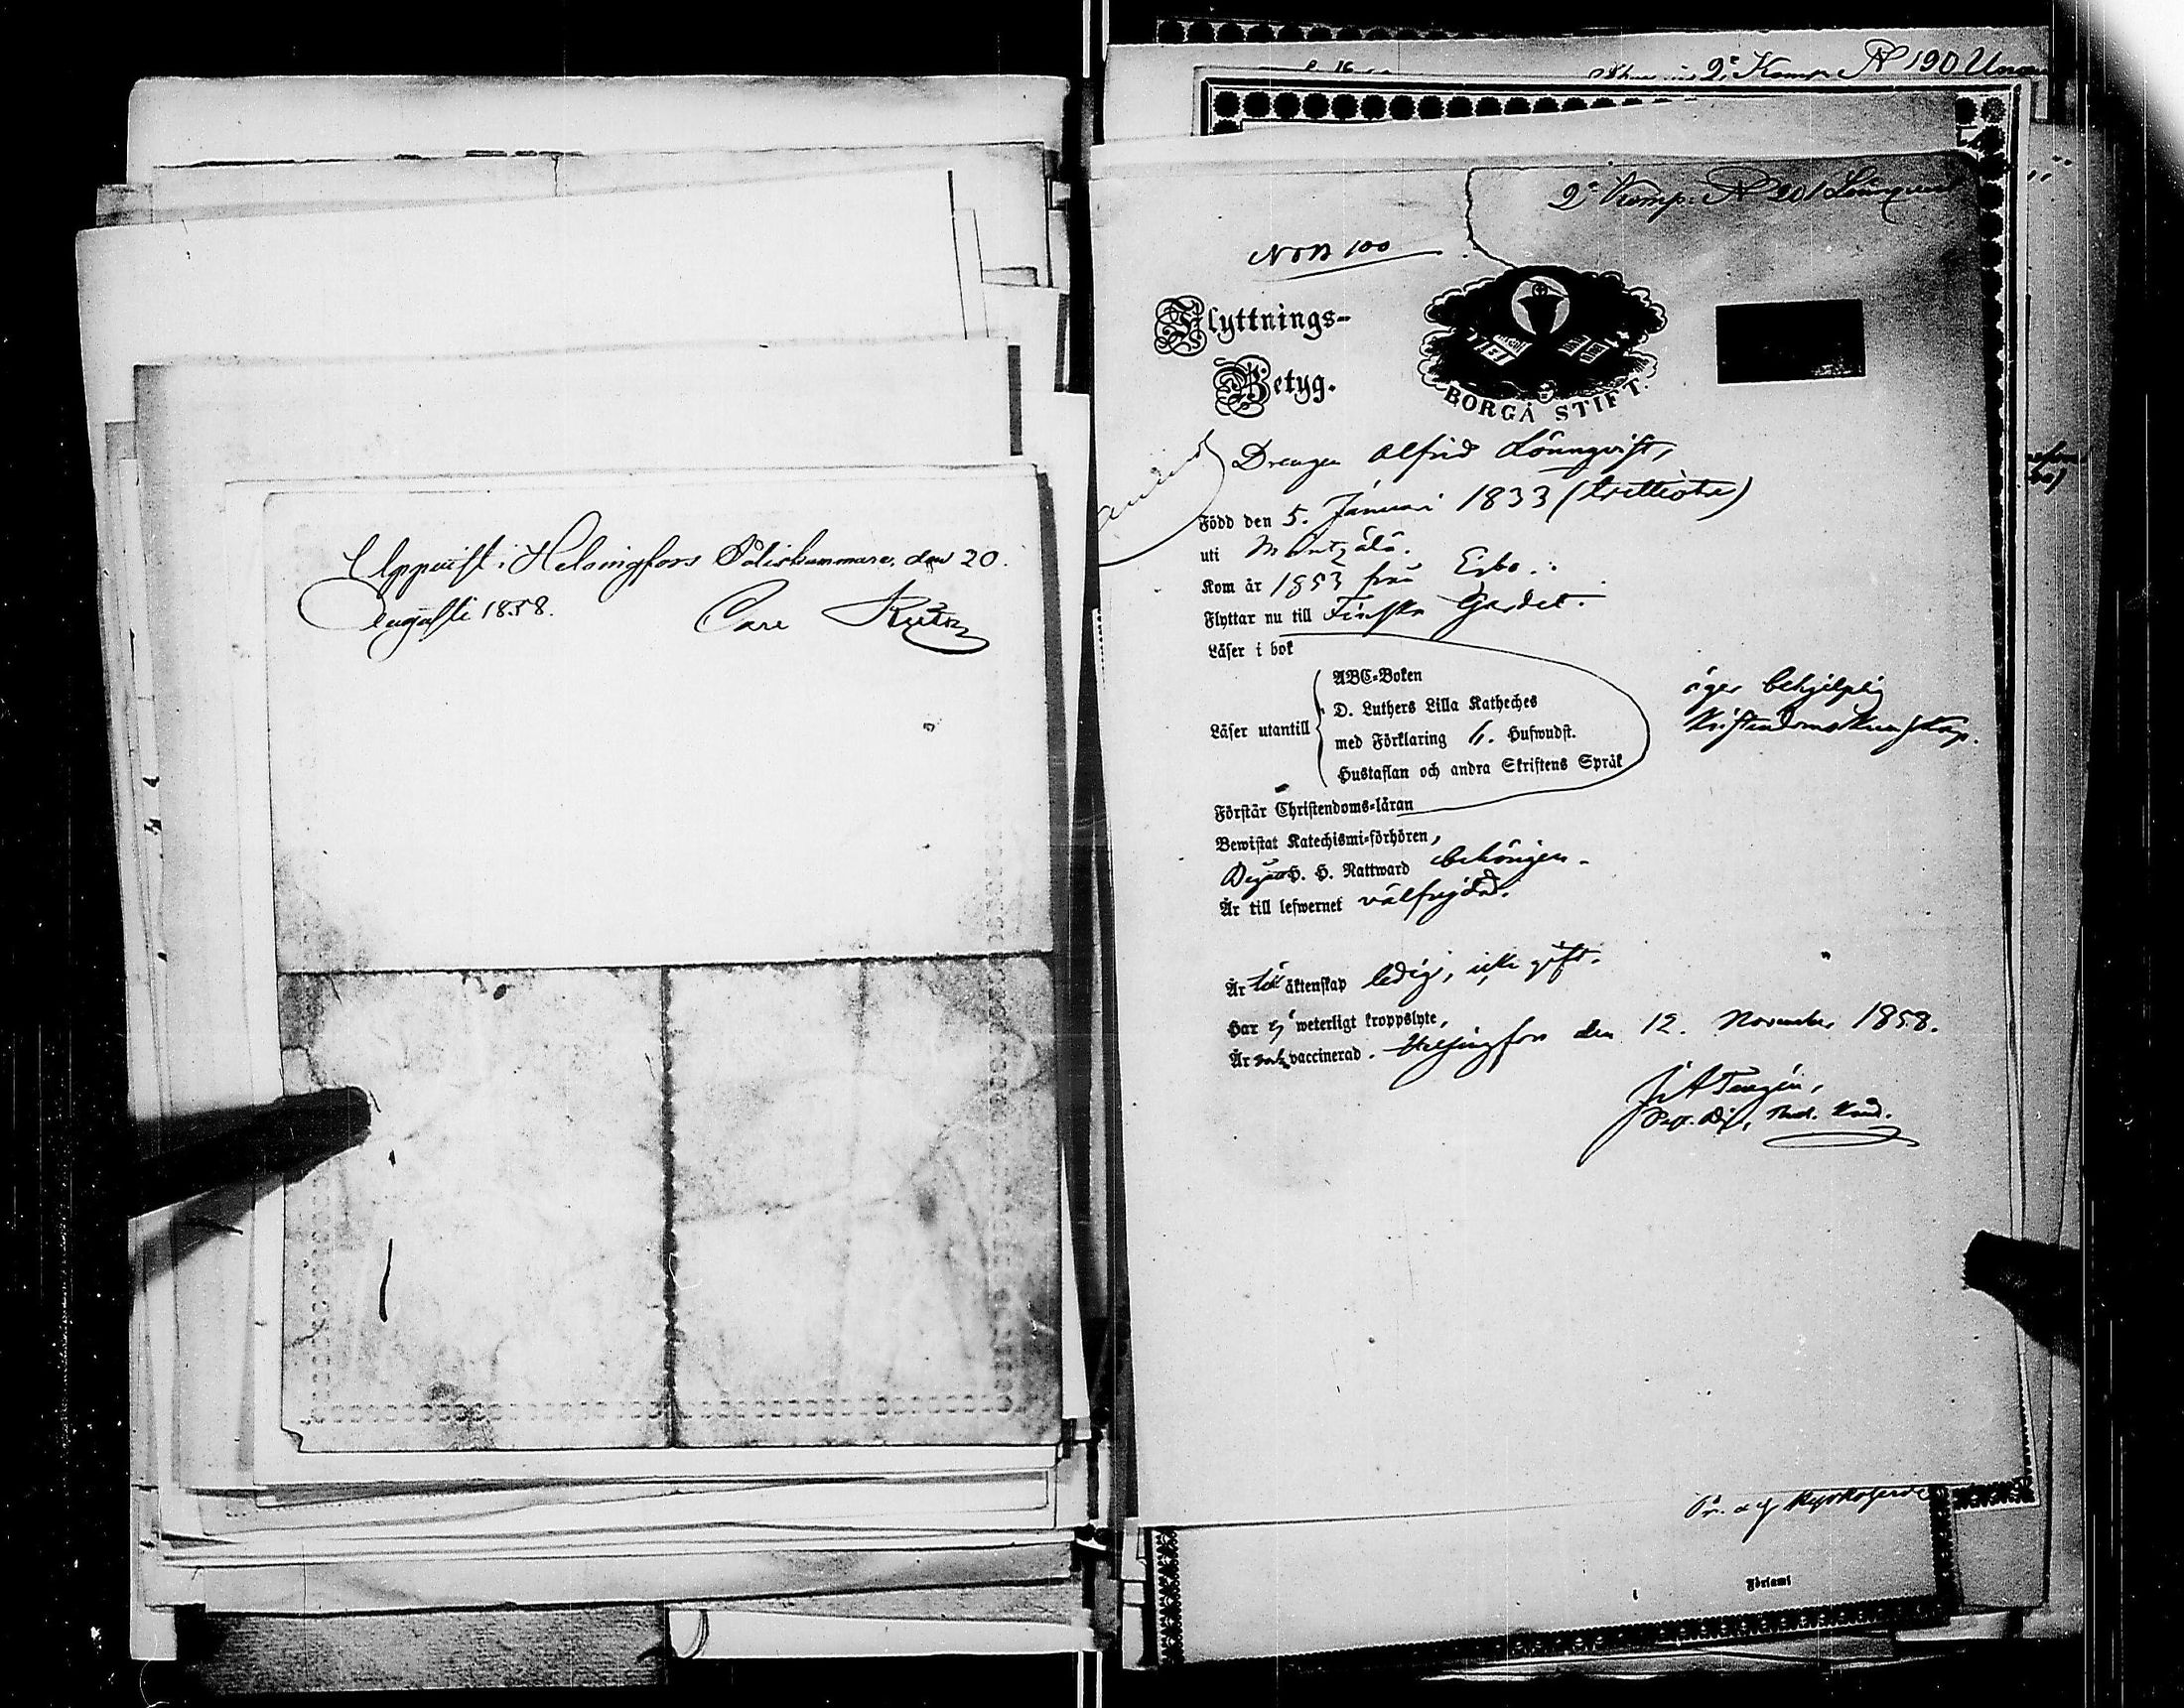 Uppvist i Helsingfors Poliskammare, den 20.
Augusti 1858. Carl
2e Komp. N 190
2e Komp. N 201 Lönnqvist
Non 100
Flyttnings-
Betyg.
BORGÅ STIFT.
Drengen Alfrid Lönnqvist,
Född den 5. Januari 1833 (trettiotre)
uti Mäntzälä.
Kom år 1853 från Esbo.
Flyttar nu till Finska Gardet.
Läser i bok
ABC-Boken
D. Luthers Lilla Katheches
Läser utantill
med Förklaring 6. Hufwudst.
Hustaflan och andra Skriftens Språk
äger behjelplig
Kristendomskunskap.
Förstår Christendoms-läran
Bewistat Katechismi-förhören,
Begått H. H. Nattward behörigen.
Är till lefwernet välfrejdad.
Är till äktenskap ledig, icke gift.
Har ej weterligt kroppslyte,
Är vaccinerad. Helsingfors den 12. November 1858.